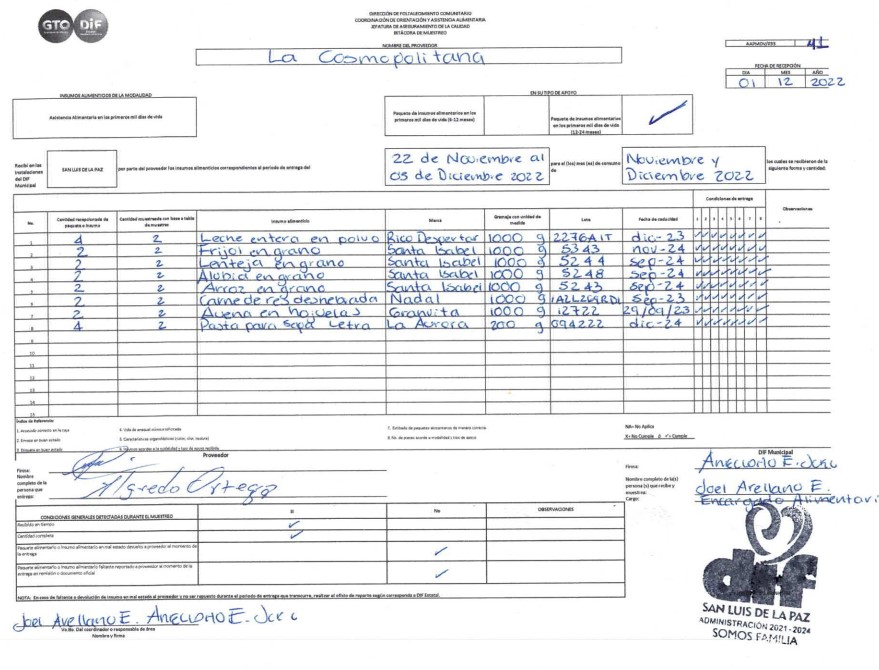 GTO DiF
DIRECCIÓN DE FORTALECIMIENTO COMUNITARIO
COORDINACIÓN DE ORIENTACIÓN Y ASISTENCIA ALIMENTARIA
JEFATURA DE ASEGURAMIENTO DE LA CALIDAD
BITÁCORA DE MUESTREO
NOMBRE DEL PROVEEDOR
La Cosmopolitana
41
FECHA DE RECEPCIÓN
DIA MES AÑO
01 12 2022
INSUMOS ALIMENTICIOS DE LA MODALIDAD
EN SU TIPO DE APOYO
Asistencia Alimentaria en los primeros mil días de vida
Paquete de insumos alimentarios en los primeros mil días de vida (6-12 meses)
Paquete de insumos alimentarios en los primeros mil días de vida (12-24 meses) ✓
Recibí en las instalaciones del DIF Municipal
SAN LUIS DE LA PAZ
por parte del proveedor los insumos alimenticios correspondientes al periodo de entrega del
22 de Noviembre al 05 de Diciembre 2022
para el (los) mes (es) de consumo de
Noviembre y Diciembre 2022
los cuales se recibieron de la siguiente forma y cantidad.
Condiciones de entrega
No. Cantidad recepcionada de paquete o insumo Cantidad muestreada con base a tabla de muestreo Insumo alimenticio Marca Gramaje con unidad de medida Lote Fecha de caducidad 1 2 3 4 5 6 7 8 Observaciones
1 4 2 Leche entera en polvo Rico Despertar 1000 g 2276A1T dic-23 ✓✓✓✓✓✓✓✓
2 2 2 Frijol en grano Santa Isabel 1000 g 5343 nov-24 ✓✓✓✓✓✓✓✓
3 2 2 Lenteja en grano Santa Isabel 1000 g 5244 sep-24 ✓✓✓✓✓✓✓✓
4 2 2 Alubia en grano Santa Isabel 1000 g 5248 sep-24 ✓✓✓✓✓✓✓✓
5 2 2 Arroz en grano Santa Isabel 1000 g 5243 sep-24 ✓✓✓✓✓✓✓✓
6 2 2 Carne de res deshebrada Nadal 1000 g Sep-23 ✓✓✓✓✓✓✓✓
7 2 2 Avena en hojuelas Granvita 1000 g 12722 29/09/23 ✓✓✓✓✓✓✓✓
8 4 2 Pasta para sopa Letra La Aurora 200 g 094222 dic-24 ✓✓✓✓✓✓✓✓
9
10
11
12
13
14
15
Índice de Referencia:
7. Entibado de paquetes alimentarios de manera correcta
NA= No Aplica
X= No Cumple ó ✓= Cumple
Proveedor
DIF Municipal
Firma:
Nombre completo de la persona que entrega:
Alfredo Ortega
Firma:
Nombre completo de la(s) persona (s) que recibe y muestrea:
Cargo:
Joel Arellano E.
Encargado Alimentari
CONDICIONES GENERALES DETECTADAS DURANTE EL MUESTREO Si No OBSERVACIONES
Recibido en tiempo ✓
Cantidad completa ✓
Paquete alimentario o insumo alimentario en mal estado devuelto a proveedor al momento de la entrega ✓
Paquete alimentario o insumo alimentario faltante reportado a proveedor al momento de la entrega en remisión o documento oficial ✓
NOTA: En caso de faltante o devolución de insumo en mal estado al proveedor y no ser repuesto durante el periodo de entrega que transcurre, realizar el oficio de reporte según corresponda a DIF Estatal.
Joel Arellano E.
Vo.Bo. Del coordinador o responsable de área
Nombre y firma
dif
SAN LUIS DE LA PAZ
ADMINISTRACIÓN 2021-2024
SOMOS FAMILIA